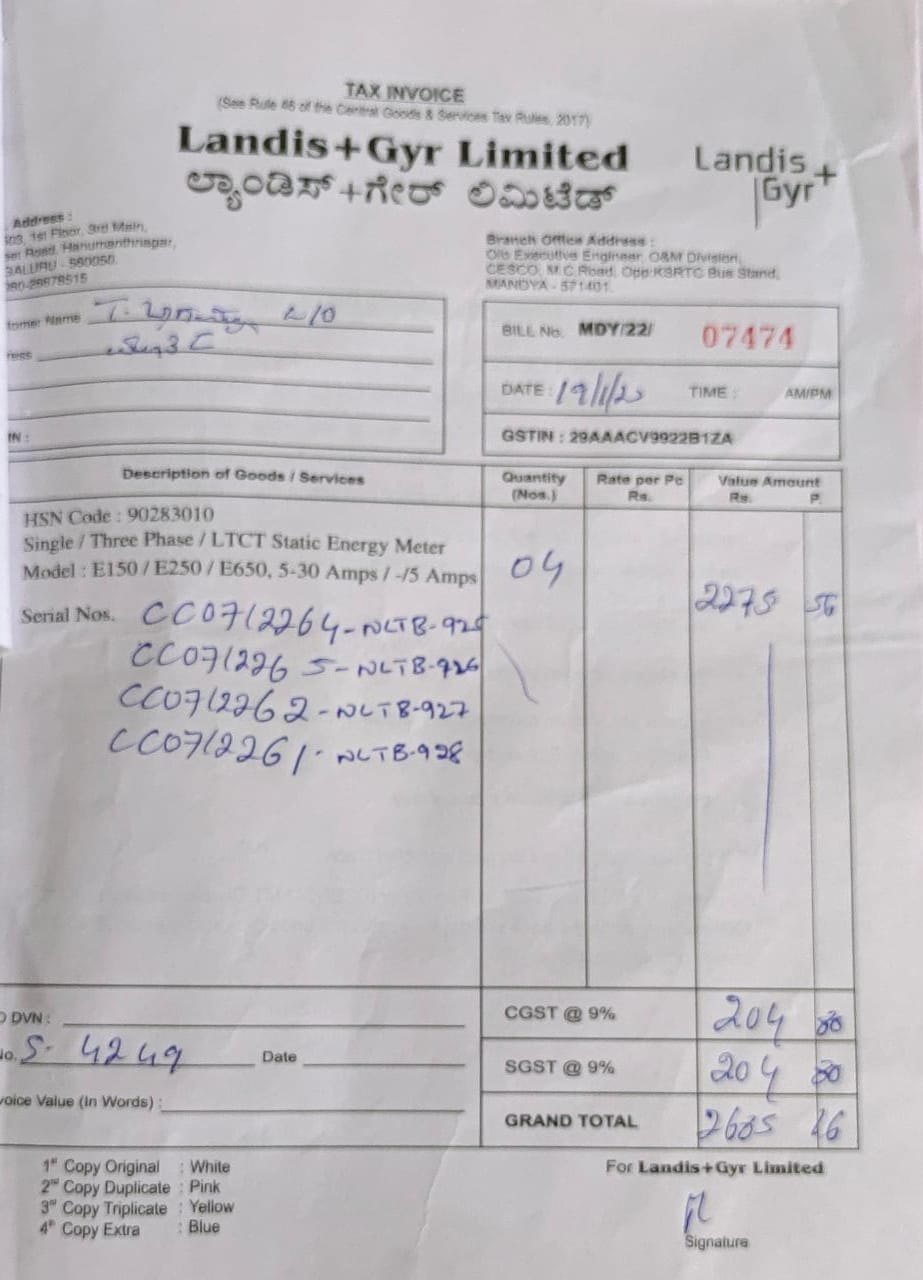 TAX INVOICE
(See Rule 46 of the Central Goods & Services Tax Rules, 2017)
Landis+Gyr Limited
ಲ್ಯಾಂಡಿಸ್+ಗೇರ್ ಲಿಮಿಟೆಡ್
Landis+
Gyr
Address :
1st Floor, 3rd Main,
Road, Hanumanthnagar,
GALURU - 560050.
080-26678515
Branch Office Address :
O/o Executive Engineer, O&M Division,
CESCO, M.C.Road, Opp.KSRTC Bus Stand,
MANDYA - 571401.
tomer Name T.
ress
IN :
BILL No. MDY/22/ 07474
DATE : 19/1/2 TIME : AM/PM
GSTIN : 29AAACV9922B1ZA
Description of Goods / Services Quantity (Nos.) Rate per Pc Rs. Value Amount Rs. P.
HSN Code : 90283010
Single / Three Phase / LTCT Static Energy Meter
Model : E150 / E250 / E650, 5-30 Amps / -/5 Amps 04
2275 56
Serial Nos. CC0712264-NLTB-925
CC0712265-NLTB-926
CC0712262-NLTB-927
CC0712261-NLTB-928
DVN :
CGST @ 9% 204 80
No. S-4249 Date
SGST @ 9% 204 80
voice Value (In Words) :
GRAND TOTAL 2685 16
1st Copy Original : White
2nd Copy Duplicate : Pink
3rd Copy Triplicate : Yellow
4th Copy Extra : Blue
For Landis+Gyr Limited
Signature